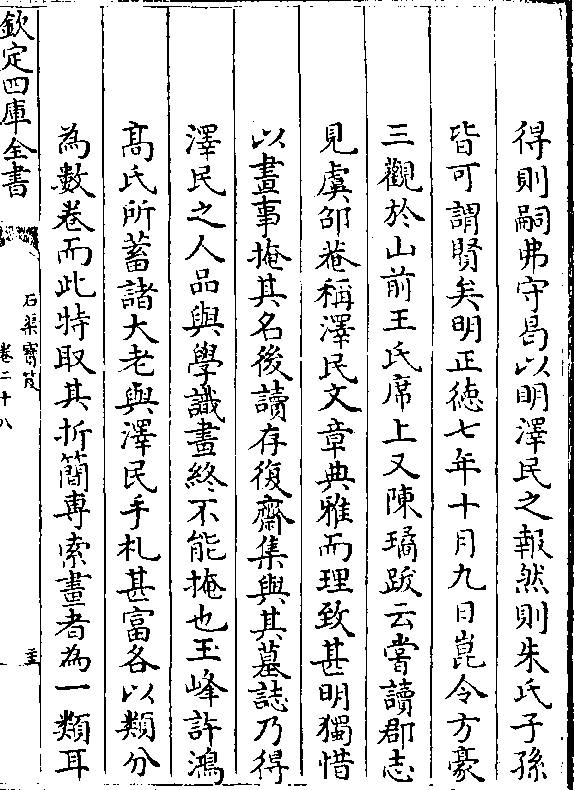 得則嗣弗守曷以明澤民之報然則朱氏子孫
皆可謂賢矣明正徳七年十月九日崑令方豪
三觀於山前王氏席上又陳璚跋云嘗讀郡志
見虞邵菴稱澤民文章典雅而理致甚明獨惜
以畫事掩其名後讀存復齋集與其墓誌乃得
澤民之人品與學識畫終不能掩也玉峰許鴻
髙氏所蓄諸大老與澤民手札甚富各以類分
為數卷而此特取其折簡専索畫者為一類耳
欽定四庫全書
石渠寳笈
卷二十八